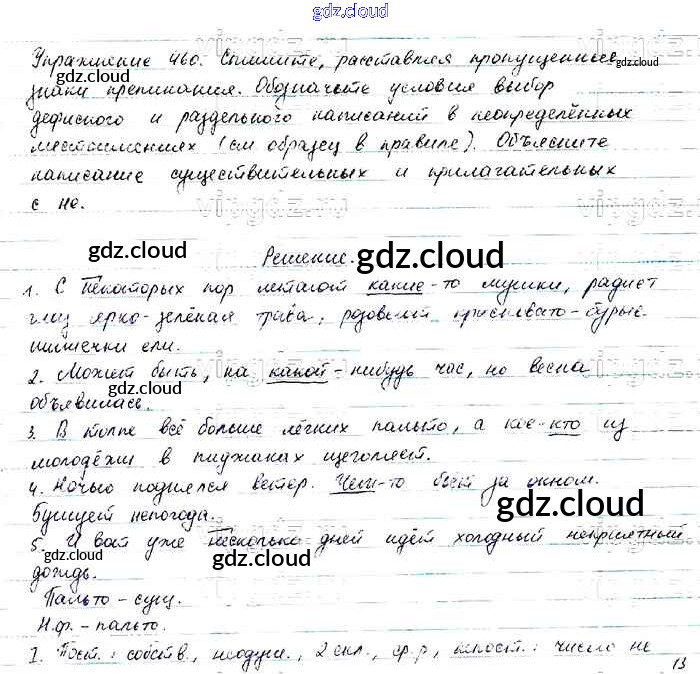 gdz.cloud
Упражнение 460. Спишите, расставляя пропущенные
знаки препинания. Обозначьте условия выбор
дефисного и раздельного написаний в неопределённых
местоимениях (см образец в правиле). Объясните
написание существительных и прилагательных
с не.
Решение.
1. С некоторых пор летают какие-то мушки, радует
глаз ярко-зелёная трава, розовеют красновато-бурые
шишечки ели.
2. Может быть, на какой-нибудь час, но весна
объявилась.
3. В толпе всё больше лёгких пальто, а кое-кто из
молодёжи в пиджаках щеголяет.
4. Ночью поднялся ветер. Чем-то бьёт за окном.
Бушует непогода.
5. И вот уже несколько дней идёт холодный неприятный
дождь.
Пальто - сущ.
Н.ф. - пальто.
I. Пост.: собств., неодуш., 2 скл., ср.р, пост.: число не
13